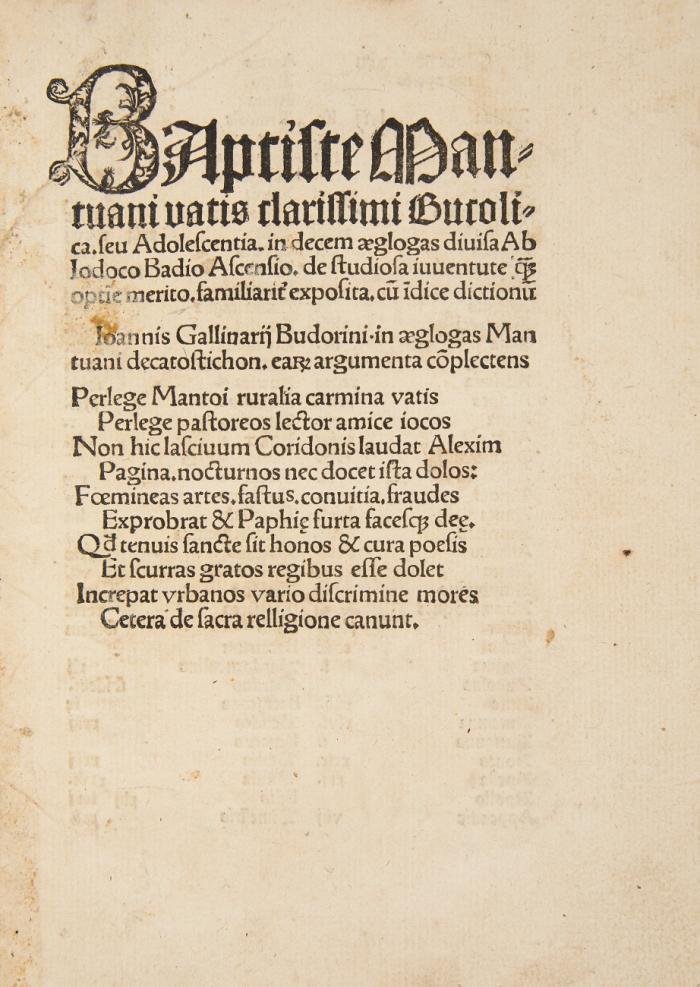 BAptiſte Man⸗
tuani vatis clariſſimi Bucoli⸗
ca. ſeu Adoleſcentia. in decem æglogas diuiſa Ab
Iodoco Badio Aſcenſio. de ſtudioſa iuuentute ꝙ̃
optie merito. familiarit᷑ expoſita. cū īdice dictionū
Ioannis Gallinarij Budorini· in æglogas Man
tuani decatoſtichon. eaꝝ argumenta cōplectens
Perlege Mantoi ruralia carmina vatis
Perlege paſtoreos lector amice iocos
Non hic laſciuum Coridonis laudat Alexim
Pagina. nocturnos nec docet iſta dolos:
Fœmineas artes. faſtus. conuitia. fraudes
Exprobrat & Paphię furta faceſqꝫ deę.
Qd̄ tenuis ſancte ſit honos & cura poeſis
Et ſcurras gratos regibus eſſe dolet
Increpat vrbanos vario diſcrimine mores
Cetera de ſacra relligione canunt.